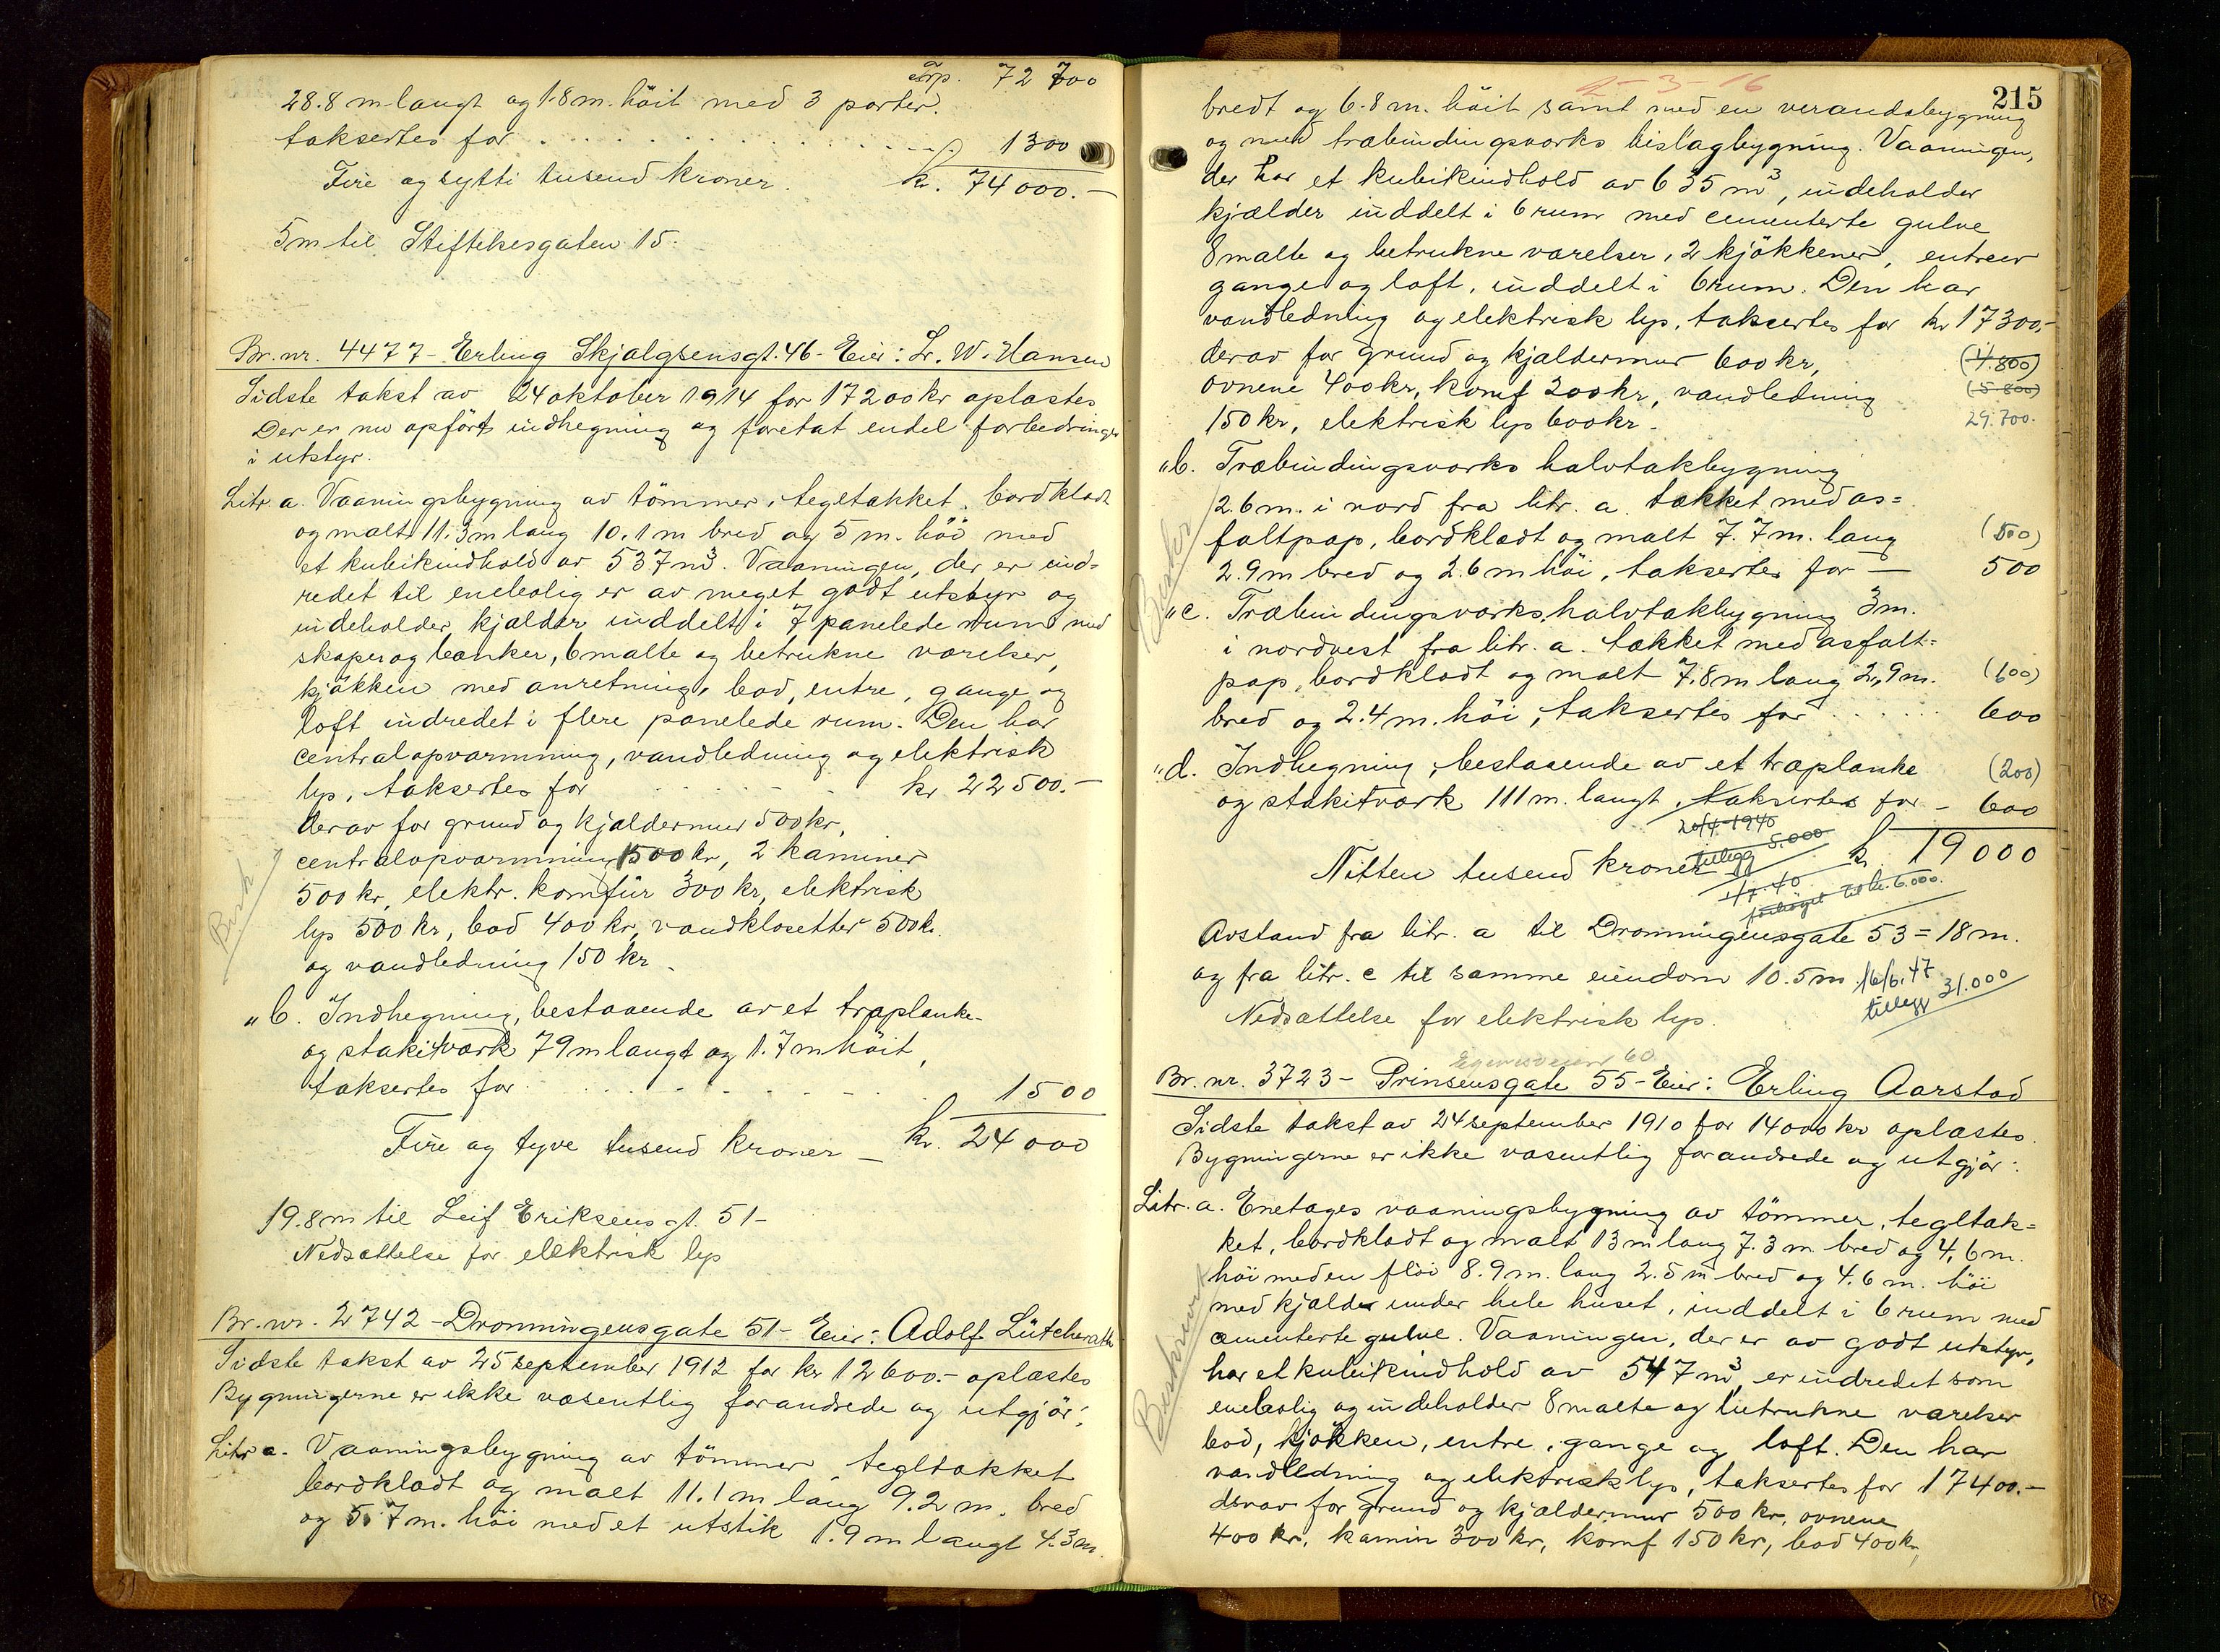 Trp. 72 700
28.8 m langt og 1.8 m. höit med 3 porter.
taksertes for . . . . . . . . . 1300
Fire og sytti tusend kroner. kr. 74000.-
5 m til Stiftelsesgaten 15.
Br. nr. 4477 - Erling Skjalgsensgt. 46 - Eier: Lr. W. Hansen
Sidste takst av 24 oktober 1914 for 17200 kr oplæstes
Der er nu opført indhegning og foretat endel forbedringer
i utstyr.
Litr. a. Vaaningsbygning av tömmer, tegltækket, bordklædt
og malt 11.3 m lang 10.1 m bred og 5 m. höi med
et kubikindhold av 537 m3. Vaaningen, der er ind=
redet til enebolig er av meget godt utstyr og
indeholder kjælder inddelt i 7 panelede rum med
skaper og bænker, 6 malte og betrukne værelser,
kjökken med anretning, bad, entre, gange og
loft indredet i flere panelede rum. Den har
centralopvarmning, vandledning og elektrisk
lys, taksertes for . . . . kr 22500.-
derav for grund og kjældermur 500 kr,
centralopvarmning 1500 kr, 2 kaminer
500 kr, elektr. komfür 300 kr, elektrisk
lys 500 kr, bad 400 kr, vandklosetter 500 kr.
og vandledning 150 kr.
Besk
„ b. Indhegning, bestaaende av et træplanke-
og stakitværk 79 m langt og 1.7 m höit,
taksertes for . . . . . . . . 1500
Fire og tyve tusend kroner - kr. 24000
19.8 m til Leif Eriksens gt. 51-
Nedsættelse for elektrisk lys
Br. nr. 2742 - Dronningensgate 51 - Eier: Adolf Lütcherath
Sidste takst av 25 september 1912 for kr 12600.- oplæstes
Bygningerne er ikke væsentlig forandrede og utgjör:
Litr a. Vaaningsbygning av tömmer, tegltækket
bordklædt og malt 11.1 m lang 9.2 m. bred
og 5.7 m. höi med et utstik 1.9 m langt 4.3 m.
2-3-16
215
bredt og 6.8 m. höit samt med en verandabygning
og med træbindingsværks bislagbygning. Vaaningen,
der har et kubikindhold av 635 m3, indeholder
kjælder inddelt i 6 rum med cementerte gulve
8 malte og betrukne værelser, 2 kjökkener, entreer
gange og loft, inddelt i 6 rum. Den har
vandledning og elektrisk lys, taksertes for kr 17300.-
derav for grund og kjældermur 600 kr, (4.800)
ovnene 400 kr, komf 200 kr, vandledning (5 800)
150 kr, elektrisk lys 600 kr. 29.700.
„ b. Træbindingsværks halvtakbygning
2.6 m. i nord fra litr. a. tækket med as=
faltpap, bordklædt og malt 7.7 m. lang (500)
2.9 m bred og 2.6 m höi, taksertes for - 500
„ c. Træbindingsværks halvtakbygning 3 m.
i nordvest fra litr. a. tækket med asfalt=
pap, bordklædt og malt 7.8 m lang 2,9 m. (600)
bred og 2.4 m. höi, taksertes for . . . . . 600
„ d. Indhegning, bestaaende av et træplanke (200)
og stakitværk 111 m. langt, taksertes for - 600
20/4-1940
tillegg 5.000
Nitten tusend kroner kr. 19000
1/7.40
forhöyet til kr. 6.000.
Avstand fra litr. a til Dronningensgate 53 = 18 m.
og fra litr. c til samme eiendom 10.5 m
16/6.47
tillegg 31.000
Nedsættelse for elektrisk lys.
Egenesveien 60
Br. nr. 3723 - Prinsensgate 55 - Eier: Erling Aarstad
Sidste takst av 24 september 1910 for 14000 kr oplæstes.
Bygningerne er ikke væsentlig forandrede og utgjör:
Litr. a. Enetages vaaningsbygning av tömmer, tegltæk=
ket, bordklædt og malt 13 m lang 7.3 m bred og 4,6 m.
höi med en flöi 8.9 m. lang 2.5 m bred og 4.6 m. höi
med kjælder under hele huset, inddelt i 6 rum med
cementerte gulve. Vaaningen, der er av godt utstyr,
har et kubikindhold av 547 m3, er indredet som
enebolig og indeholder 8 malte og betrukne værelser
bad, kjökken, entre, gange og loft. Den har
vandledning og elektrisk lys, taksertes for 17400.-
derav for grund og kjældermur 500 kr, ovnene
400 kr, kamin 300 kr, komf 150 kr, bad 400 kr,